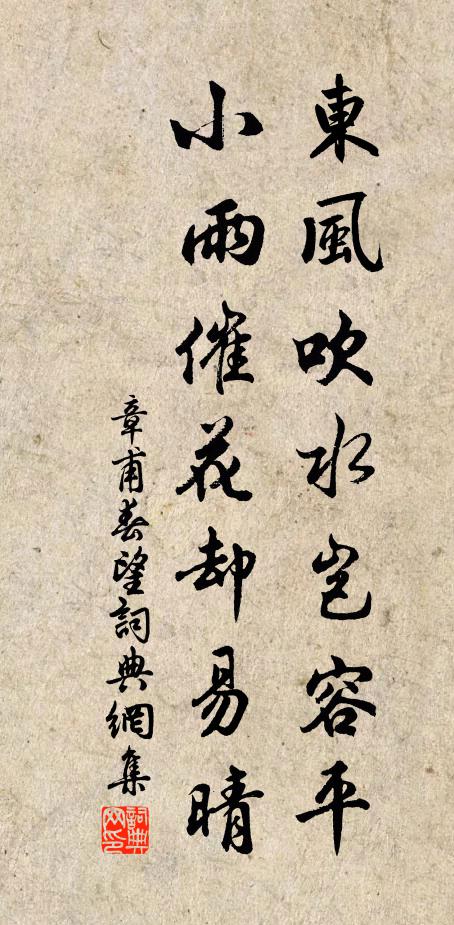 東風吹水豈容平
小雨催花却易晴
章甫春望詞典網集
詞典網印